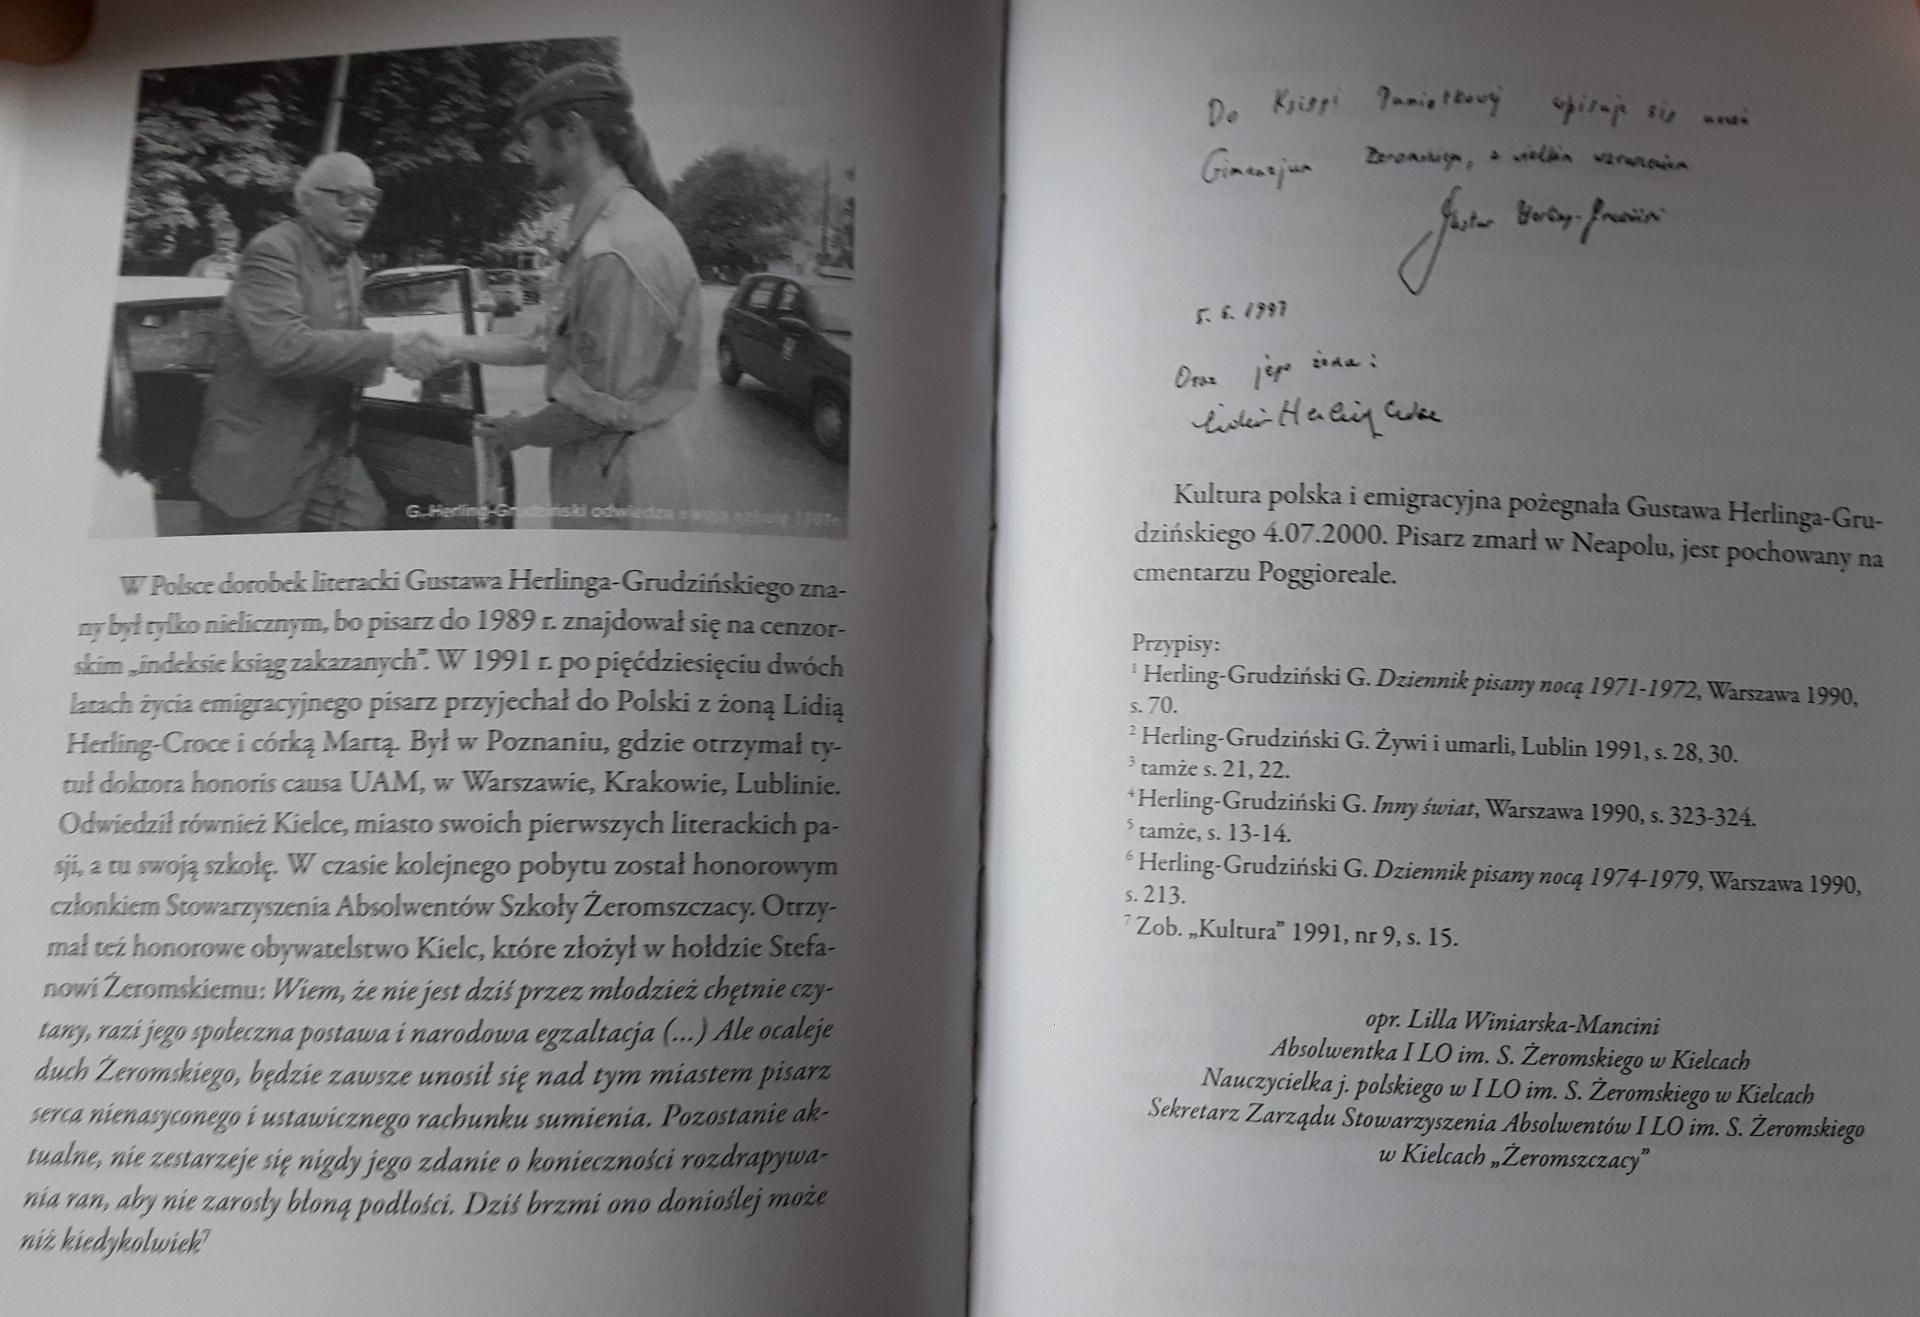 G. Herling-Grudziński odwiedza swoją szkołę 1997r.
W Polsce dorobek literacki Gustawa Herlinga-Grudzińskiego zna-
ny był tylko nielicznym, bo pisarz do 1989 r. znajdował się na cenzor-
skim „indeksie ksiąg zakazanych”. W 1991 r. po pięćdziesięciu dwóch
latach życia emigracyjnego pisarz przyjechał do Polski z żoną Lidią
Herling-Croce i córką Martą. Był w Poznaniu, gdzie otrzymał ty-
tuł doktora honoris causa UAM, w Warszawie, Krakowie, Lublinie.
Odwiedził również Kielce, miasto swoich pierwszych literackich pa-
sji, a tu swoją szkołę. W czasie kolejnego pobytu został honorowym
członkiem Stowarzyszenia Absolwentów Szkoły Żeromszczacy. Otrzy-
mał też honorowe obywatelstwo Kielc, które złożył w hołdzie Stefa-
nowi Żeromskiemu: Wiem, że nie jest dziś przez młodzież chętnie czy-
tany, razi jego społeczna postawa i narodowa egzaltacja (...) Ale ocaleje
duch Żeromskiego, będzie zawsze unosił się nad tym miastem pisarz
serca nienasyconego i ustawicznego rachunku sumienia. Pozostanie ak-
tualne, nie zestarzeje się nigdy jego zdanie o konieczności rozdrapywa-
nia ran, aby nie zarosły błoną podłości. Dziś brzmi ono donioślej może
niż kiedykolwiek⁷
Do Księgi Pamiątkowej wpisuje się uczeń
Gimnazjum Żeromskiego, z wielkim wzruszeniem
Gustaw Herling-Grudziński
5. 6. 1997
Oraz jego żona:
Lidia Herling Croce
Kultura polska i emigracyjna pożegnała Gustawa Herlinga-Gru-
dzińskiego 4.07.2000. Pisarz zmarł w Neapolu, jest pochowany na
cmentarzu Poggioreale.
Przypisy:
¹ Herling-Grudziński G. Dziennik pisany nocą 1971-1972, Warszawa 1990,
s. 70.
² Herling-Grudziński G. Żywi i umarli, Lublin 1991, s. 28, 30.
³ tamże s. 21, 22.
⁴ Herling-Grudziński G. Inny świat, Warszawa 1990, s. 323-324.
⁵ tamże, s. 13-14.
⁶ Herling-Grudziński G. Dziennik pisany nocą 1974-1979, Warszawa 1990,
s. 213.
⁷ Zob. „Kultura” 1991, nr 9, s. 15.
opr. Lilla Winiarska-Mancini
Absolwentka I LO im. S. Żeromskiego w Kielcach
Nauczycielka j. polskiego w I LO im. S. Żeromskiego w Kielcach
Sekretarz Zarządu Stowarzyszenia Absolwentów I LO im. S. Żeromskiego
w Kielcach „Żeromszczacy”